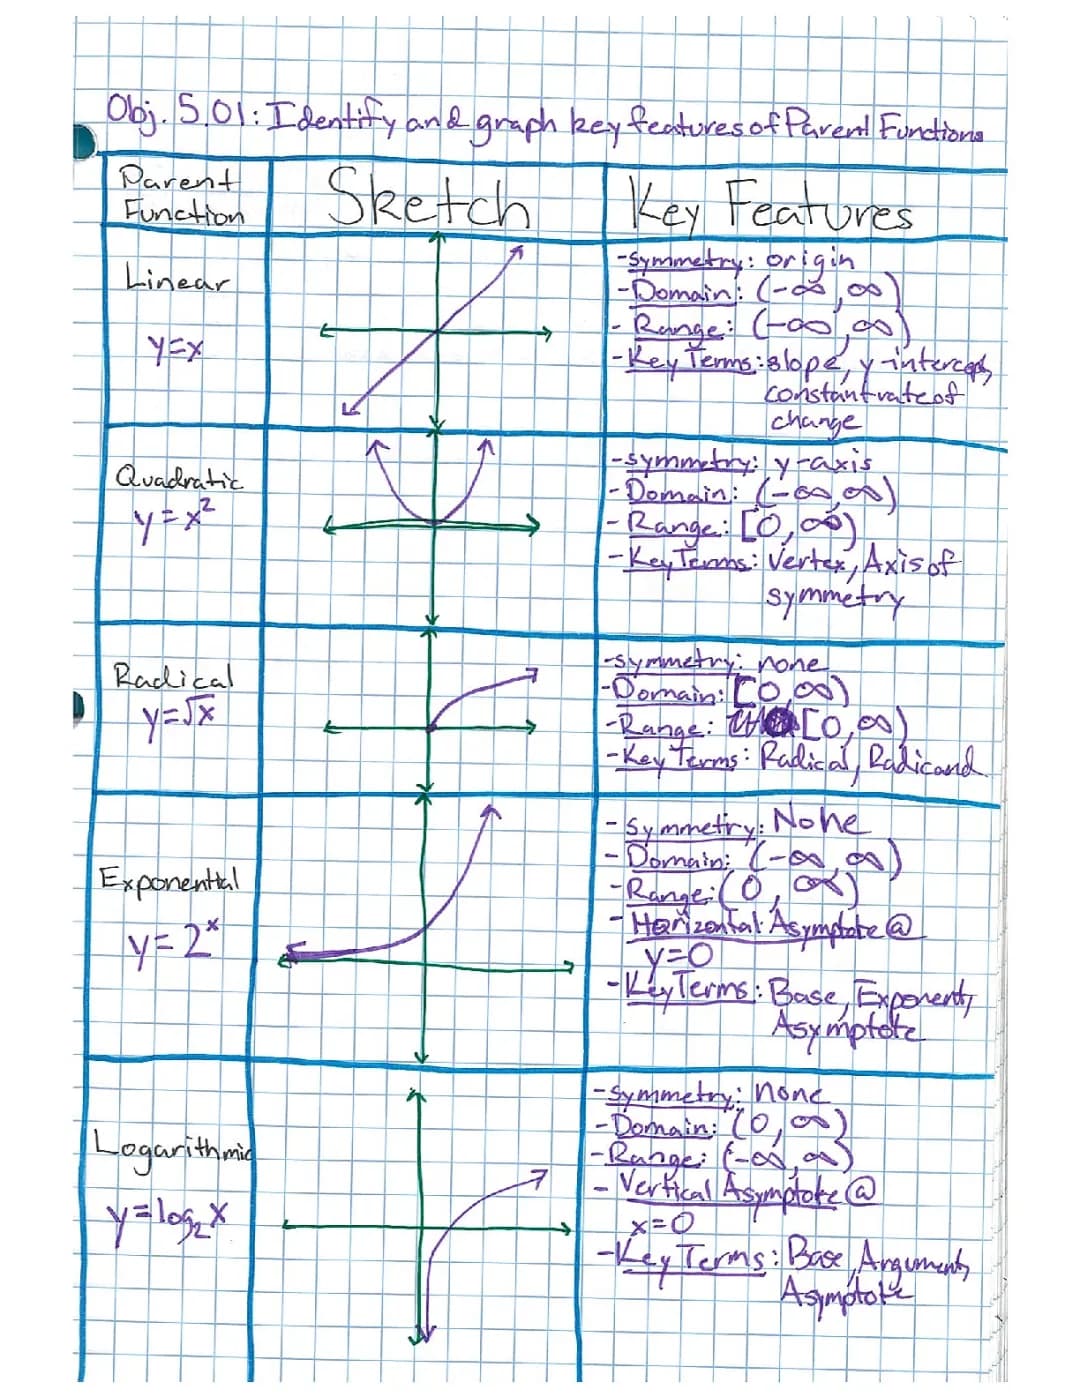 Obj. 5.01: Identify and graph key features of Parent Functions
Parent Function
Sketch
Key Features
Linear
y=x
-symmetry: origin
-Domain: (-∞,∞)
-Range: (-∞,∞)
-Key Terms: slope, y-intercept,
constant rate of
change
Quadratic
y=x²
-symmetry: y-axis
-Domain: (-∞,∞)
-Range: [0,∞)
-Key Terms: Vertex, Axis of
symmetry
Radical
y=√x
-symmetry: none
-Domain: [0,∞)
-Range: [0,∞)
-Key Terms: Radical, Radicand
Exponential
y=2ˣ
-Symmetry: None
-Domain: (-∞,∞)
-Range: (0,∞)
-Horizontal Asymptote @
y=0
-Key Terms: Base, Exponent,
Asymptote
Logarithmic
y=log₂x
-symmetry: none
-Domain: (0,∞)
-Range: (-∞,∞)
-Vertical Asymptote @
x=0
-Key Terms: Base, Argument,
Asymptote